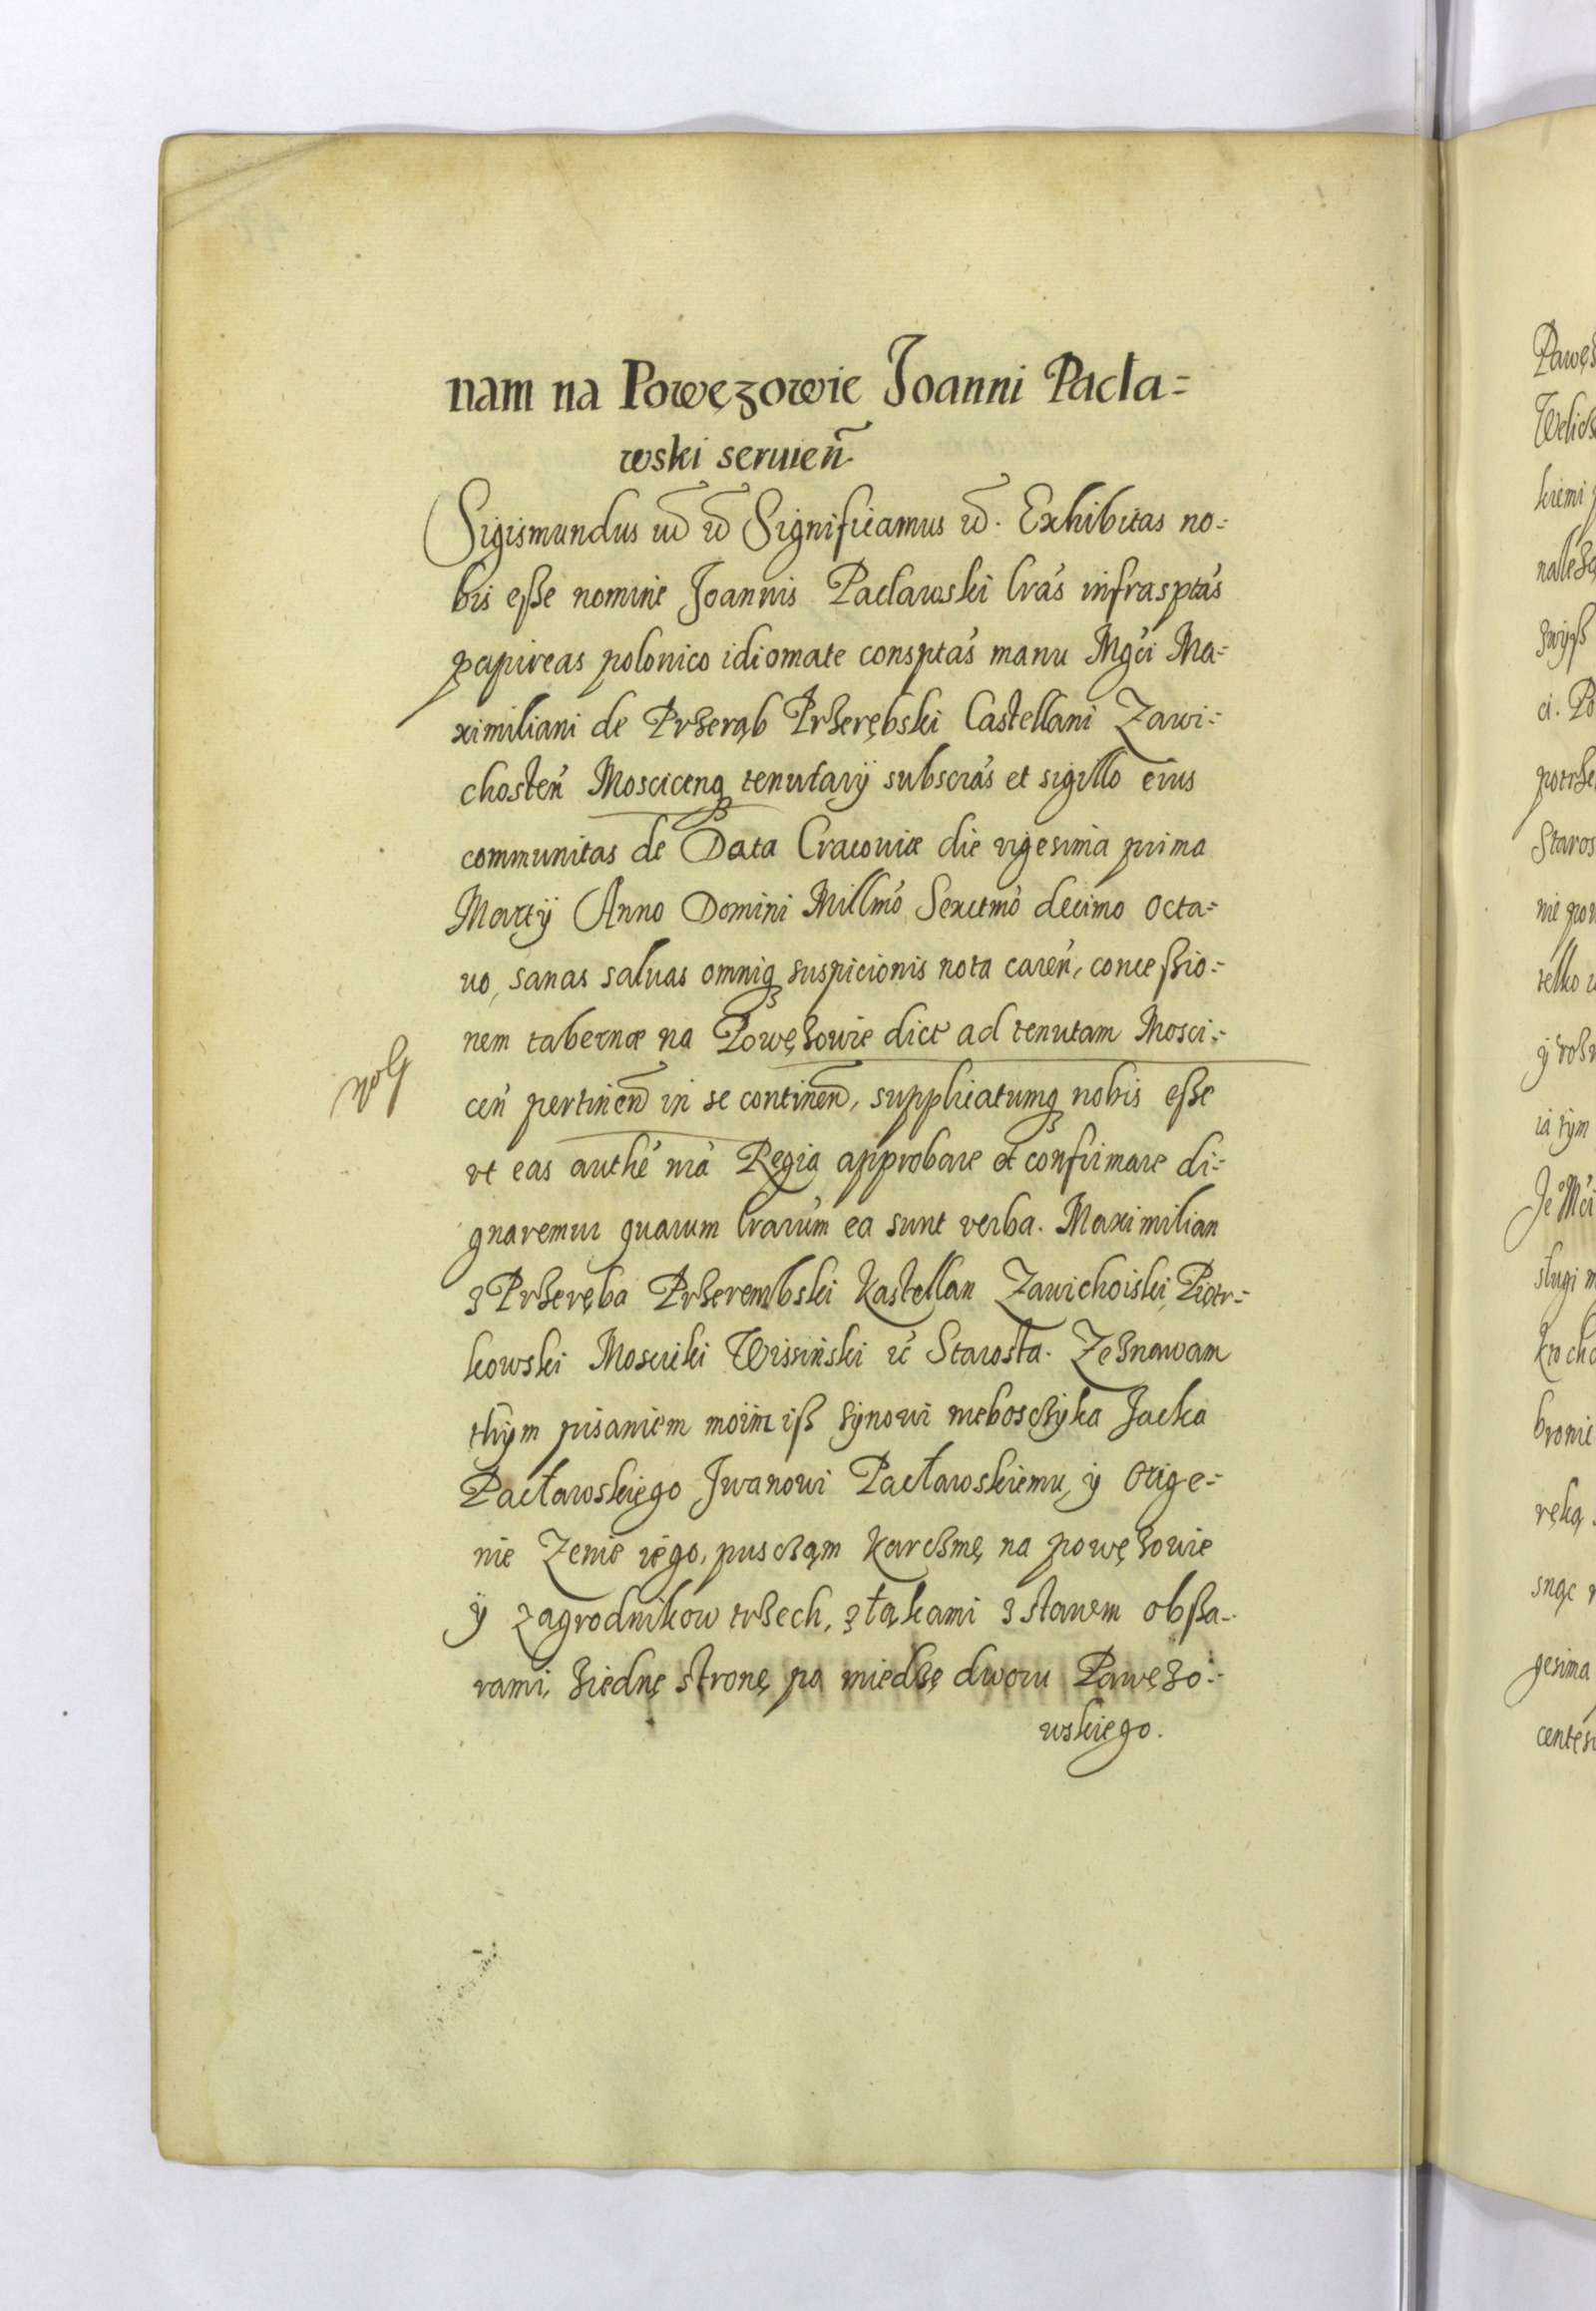 nam na Powęzowie Joanni Pacła=
wski seruień.
Sigismundus etc̃ etc̃ Significamus etc̃. Exhibitas no=
bis eße nomine Joannis Pacławski lrás infrasptás
papireas polonico idiomate consptás manu Mgći Ma=
ximiliani de Przerąb Przerębski Castellani Zawi=
chosteń Mosciceńq tenutarÿ subscrás et sigillo eius
communitas de Data Cracouiæ die vigesima prima
Martÿ Anno Domini Millmó Sexctmó decimo octa=
uo, sanas saluas omniq suspicionis nota careń, conceßio=
nem tabernæ na Powęzowie dict ad tenutam Mosci=
ceń pertineñ in se contineñ, supplicatumq nobis eße
vt eas authé nrá Regia approbare et confirmare di=
gnaremur quarum lrarúm ea sunt verba. Maximilian
z Przeręba Przerembski Kastellan Zawichoiski, Piotr=
kowski Mosciski Wissiński etć Starosta. Zeznawam
thym pisaniem moim iß synowi nieboszczyka Jacka
Pacławskiego Jwanowi Pacławskiemu, ÿ Orige=
nie Zenie iego, puscząm karczmę na powęzowie
ÿ zagrodnikow trzech, z łąkami z stawem obßa=
rami, ziednę stronę po miedzę dworu Pawęzo=
wskiego.